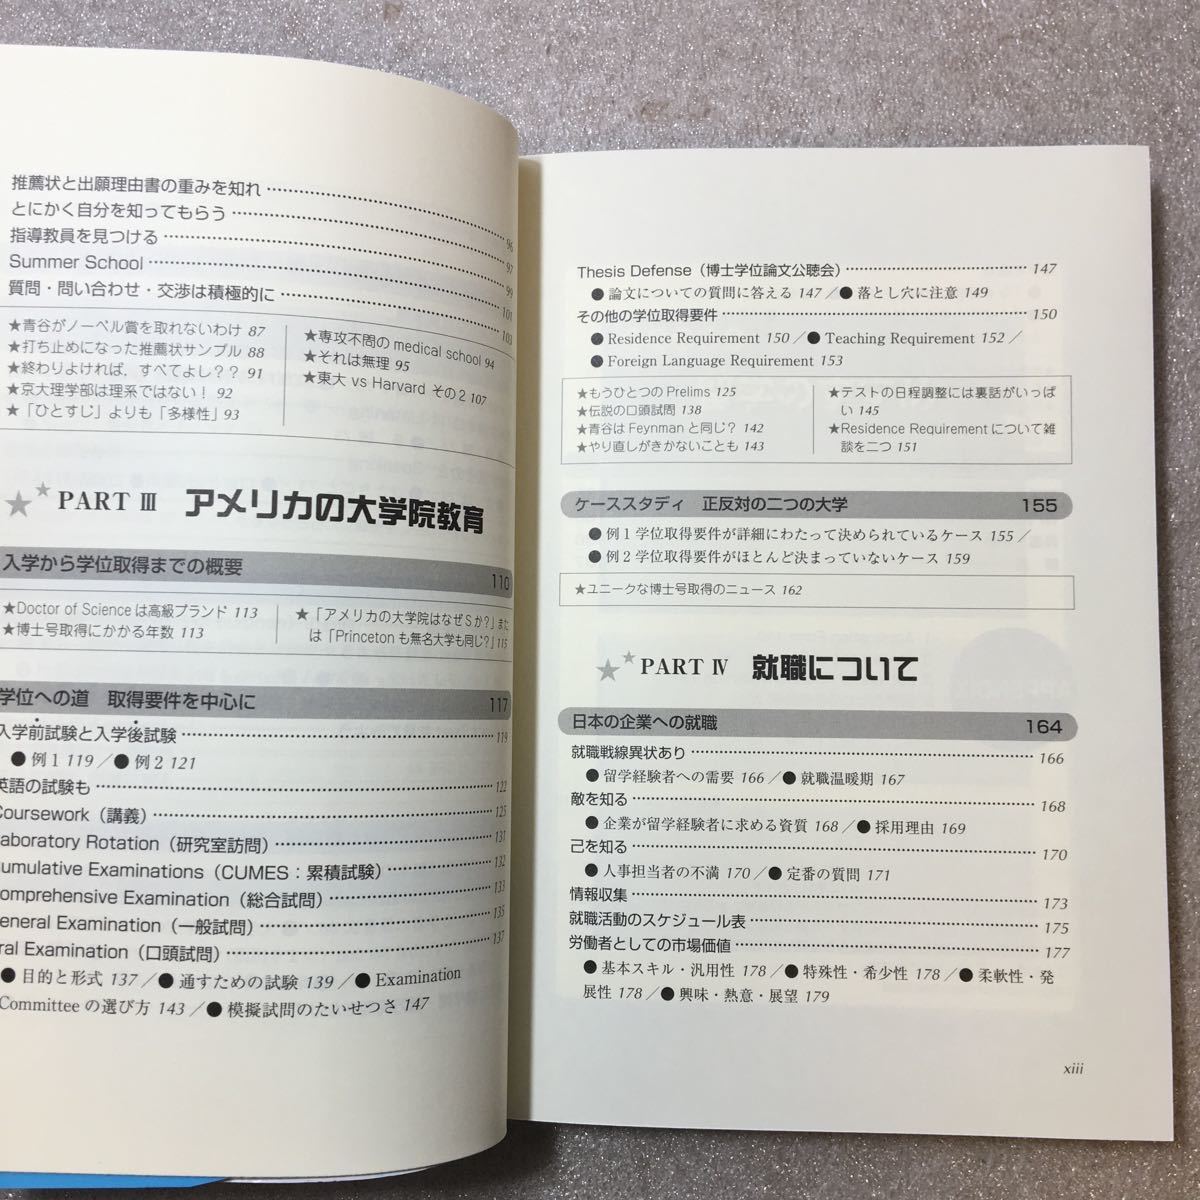 推薦状と出願理由書の重みを知れ……96
とにかく自分を知ってもらう……97
指導教員を見つける……99
Summer School……101
質問・問い合わせ・交渉は積極的に……103
★青谷がノーベル賞を取れないわけ 87
★打ち止めになった推薦状サンプル 88
★終わりよければ，すべてよし？？ 91
★京大理学部は理系ではない！ 92
★「ひとすじ」よりも「多様性」93
★専攻不問の medical school 94
★それは無理 95
★東大 vs Harvard その2 107
PART Ⅲ アメリカの大学院教育
入学から学位取得までの概要 110
★Doctor of Science は高級ブランド 113
★博士号取得にかかる年数 113
★「アメリカの大学院はなぜSか？」また
は「Princeton も無名大学も同じ？」115
学位への道 取得要件を中心に 117
入学前試験と入学後試験……119
●例1 119／●例2 121
英語の試験も……122
Coursework（講義）……125
Laboratory Rotation（研究室訪問）……131
Cumulative Examinations（CUMES：累積試験）……132
Comprehensive Examination（総合試問）……133
General Examination（一般試問）……135
Oral Examination（口頭試問）……137
●目的と形式 137／●通すための試験 139／●Examination
Committee の選び方 143／●模擬試問のたいせつさ 147
Thesis Defense（博士学位論文公聴会）……147
●論文についての質問に答える 147／●落とし穴に注意 149
その他の学位取得要件……150
●Residence Requirement 150／●Teaching Requirement 152／
●Foreign Language Requirement 153
★もうひとつの Prelims 125
★伝説の口頭試問 138
★青谷は Feynman と同じ？ 142
★やり直しがきかないことも 143
★テストの日程調整には裏話がいっぱ
い 145
★Residence Requirement について雑
談を二つ 151
ケーススタディ 正反対の二つの大学 155
●例1 学位取得要件が詳細にわたって決められているケース 155／
●例2 学位取得要件がほとんど決まっていないケース 159
★ユニークな博士号取得のニュース 162
PART Ⅳ 就職について
日本の企業への就職 164
就職戦線異状あり……166
●留学経験者への需要 166／●就職温暖期 167
敵を知る……168
●企業が留学経験者に求める資質 168／●採用理由 169
己を知る……170
●人事担当者の不満 170／●定番の質問 171
情報収集……173
就職活動のスケジュール表……175
労働者としての市場価値……177
●基本スキル・汎用性 178／●特殊性・希少性 178／●柔軟性・発
展性 178／●興味・熱意・展望 179
xiii